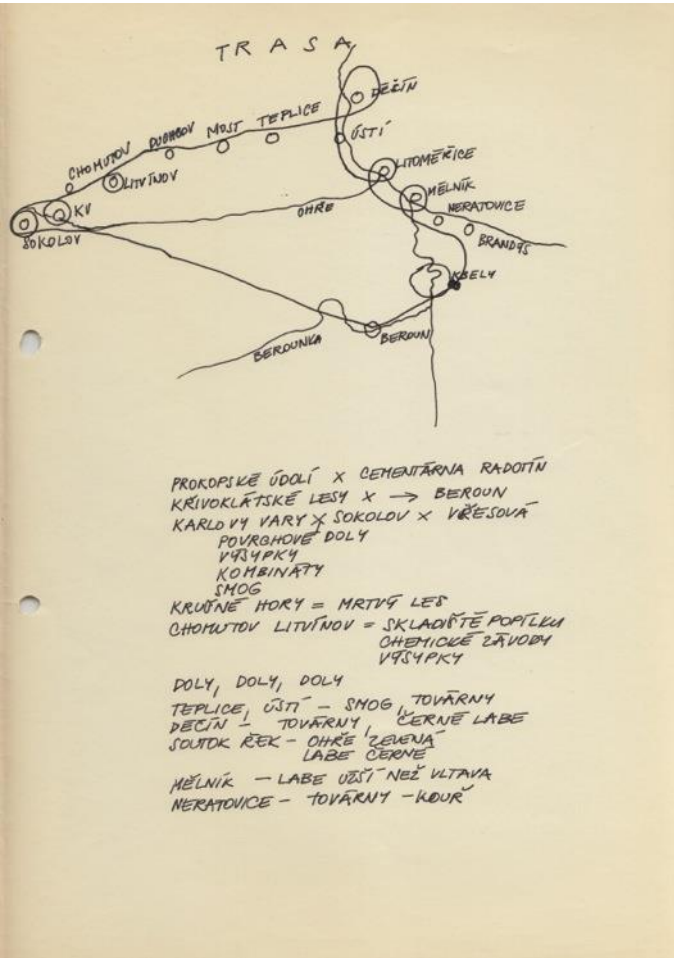 TRASA
DĚČÍN
ÚSTÍ
TEPLICE
MOST
DUCHCOV
CHOMUTOV
LITVÍNOV
LITOMĚŘICE
MĚLNÍK
NERATOVICE
BRANDÝS
KV
SOKOLOV
OHŘE
KBELY
BEROUN
BEROUNKA
PROKOPSKÉ ÚDOLÍ X CEMENTÁRNA RADOTÍN
KŘIVOKLÁTSKÉ LESY X → BEROUN
KARLOVY VARY X SOKOLOV X VŘESOVÁ
POVRCHOVÉ DOLY
VÝSYPKY
KOMBINÁTY
SMOG
KRUŠNÉ HORY = MRTVÝ LES
CHOMUTOV LITVÍNOV = SKLADIŠTĚ POPÍLKU
CHEMICKÉ ZÁVODY
VÝSYPKY
DOLY, DOLY, DOLY
TEPLICE, ÚSTÍ – SMOG, TOVÁRNY
DĚČÍN – TOVÁRNY, ČERNÉ LABE
SOUTOK ŘEK – OHŘE ZELENÁ
LABE ČERNÉ
MĚLNÍK – LABE UŽŠÍ NEŽ VLTAVA
NERATOVICE – TOVÁRNY – KOUŘ